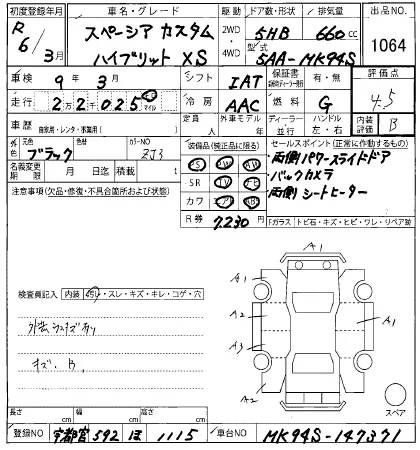 初度登録年月 車名・グレード 駆動 ドア数・形状 排気量 出品NO.
R6/3月 スペーシア カスタム 2WD 5HB 660cc 1064
ハイブリット XS 4WD 型式 5AA-MK94S
車検 9年3月 シフト IAT 保証書 有・無 評価点
走行 22025 km マイル 冷房 AAC 燃料 G 4.5
車歴 自家用・レンタ・事業用( ) 定員 人 外車モデル 年 ディーラー 並行 ハンドル 左・右 内装評価 B
外色 元色 ブラック 色替 カラーNO ZJ3 装備品(純正品に限る) セールスポイント(正常に作動するもの)
名義変更期限 月 日迄 積載 t SR TV ナビ ・両側パワースライドドア
注意事項(欠品・修復・不具合箇所および状態) カワ ・バックカメラ
・両側シートヒーター
R券 7230 Fガラス トビ石・キズ・ヒビ・ワレ・リペア跡
A1
A1
A2
A1
A3
A2
検査員記入 内装 ヨゴレ・スレ・キズ・キレ・コゲ・穴
キズ、B
スペア
長さ cm 幅 cm 高さ cm
登録NO 宇都宮 592 ほ 1115 車台NO MK94S-147371